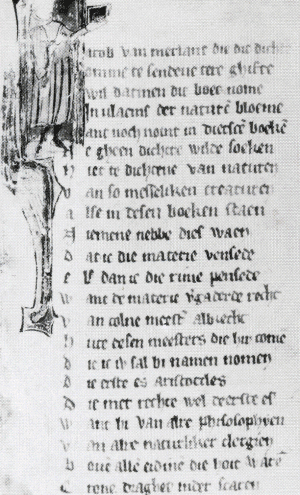 Jacob van merlant die dit dichte
omme te sendene tere ghifte
wil datmen dit boec nome
In vlaems der naturē bloeme
want noch noint in dietscē boekē
Ne gheen dichter wilde soeken
Iet te dichtene van naturen
van so messeliken creaturen
alse in desen boeken staen
Niemene hebbe dies waen
Dat ic die materie vensede
els dan ic die rime pensede
want de materie v̄gaderde recht
van colne meest̄ albrecht
vute desen meesters die hir come
die ic v sal bi namen nomen
die erste es aristotiles
die met rechte wel deerste es
want hi van alre philosophyen
van alre naturliker clergien
boue alle die noit warē
Crone draghet scaren